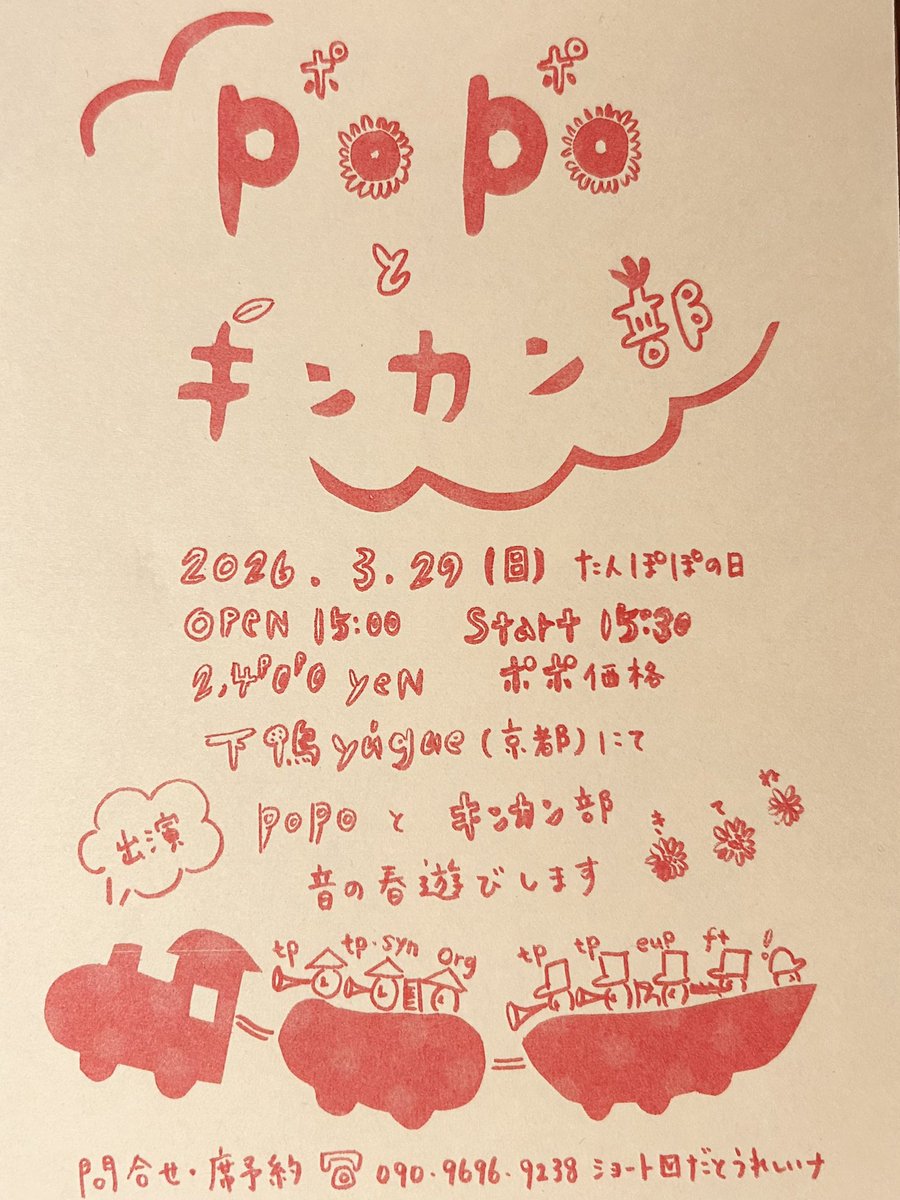 ポ ポ
popo
と
キンカン部
2026.3.29(日) たんぽぽの日
OPEN 15:00 Start 15:30
2,400 yen ポポ価格
下鴨 yúgue (京都) にて
出演
popo と キンカン部
音の春遊びします
きてね
tp tp.syn Org tp tp eup ft !
問合せ・席予約 ☎ 090.9696.9238 ショート回だとうれしいナ